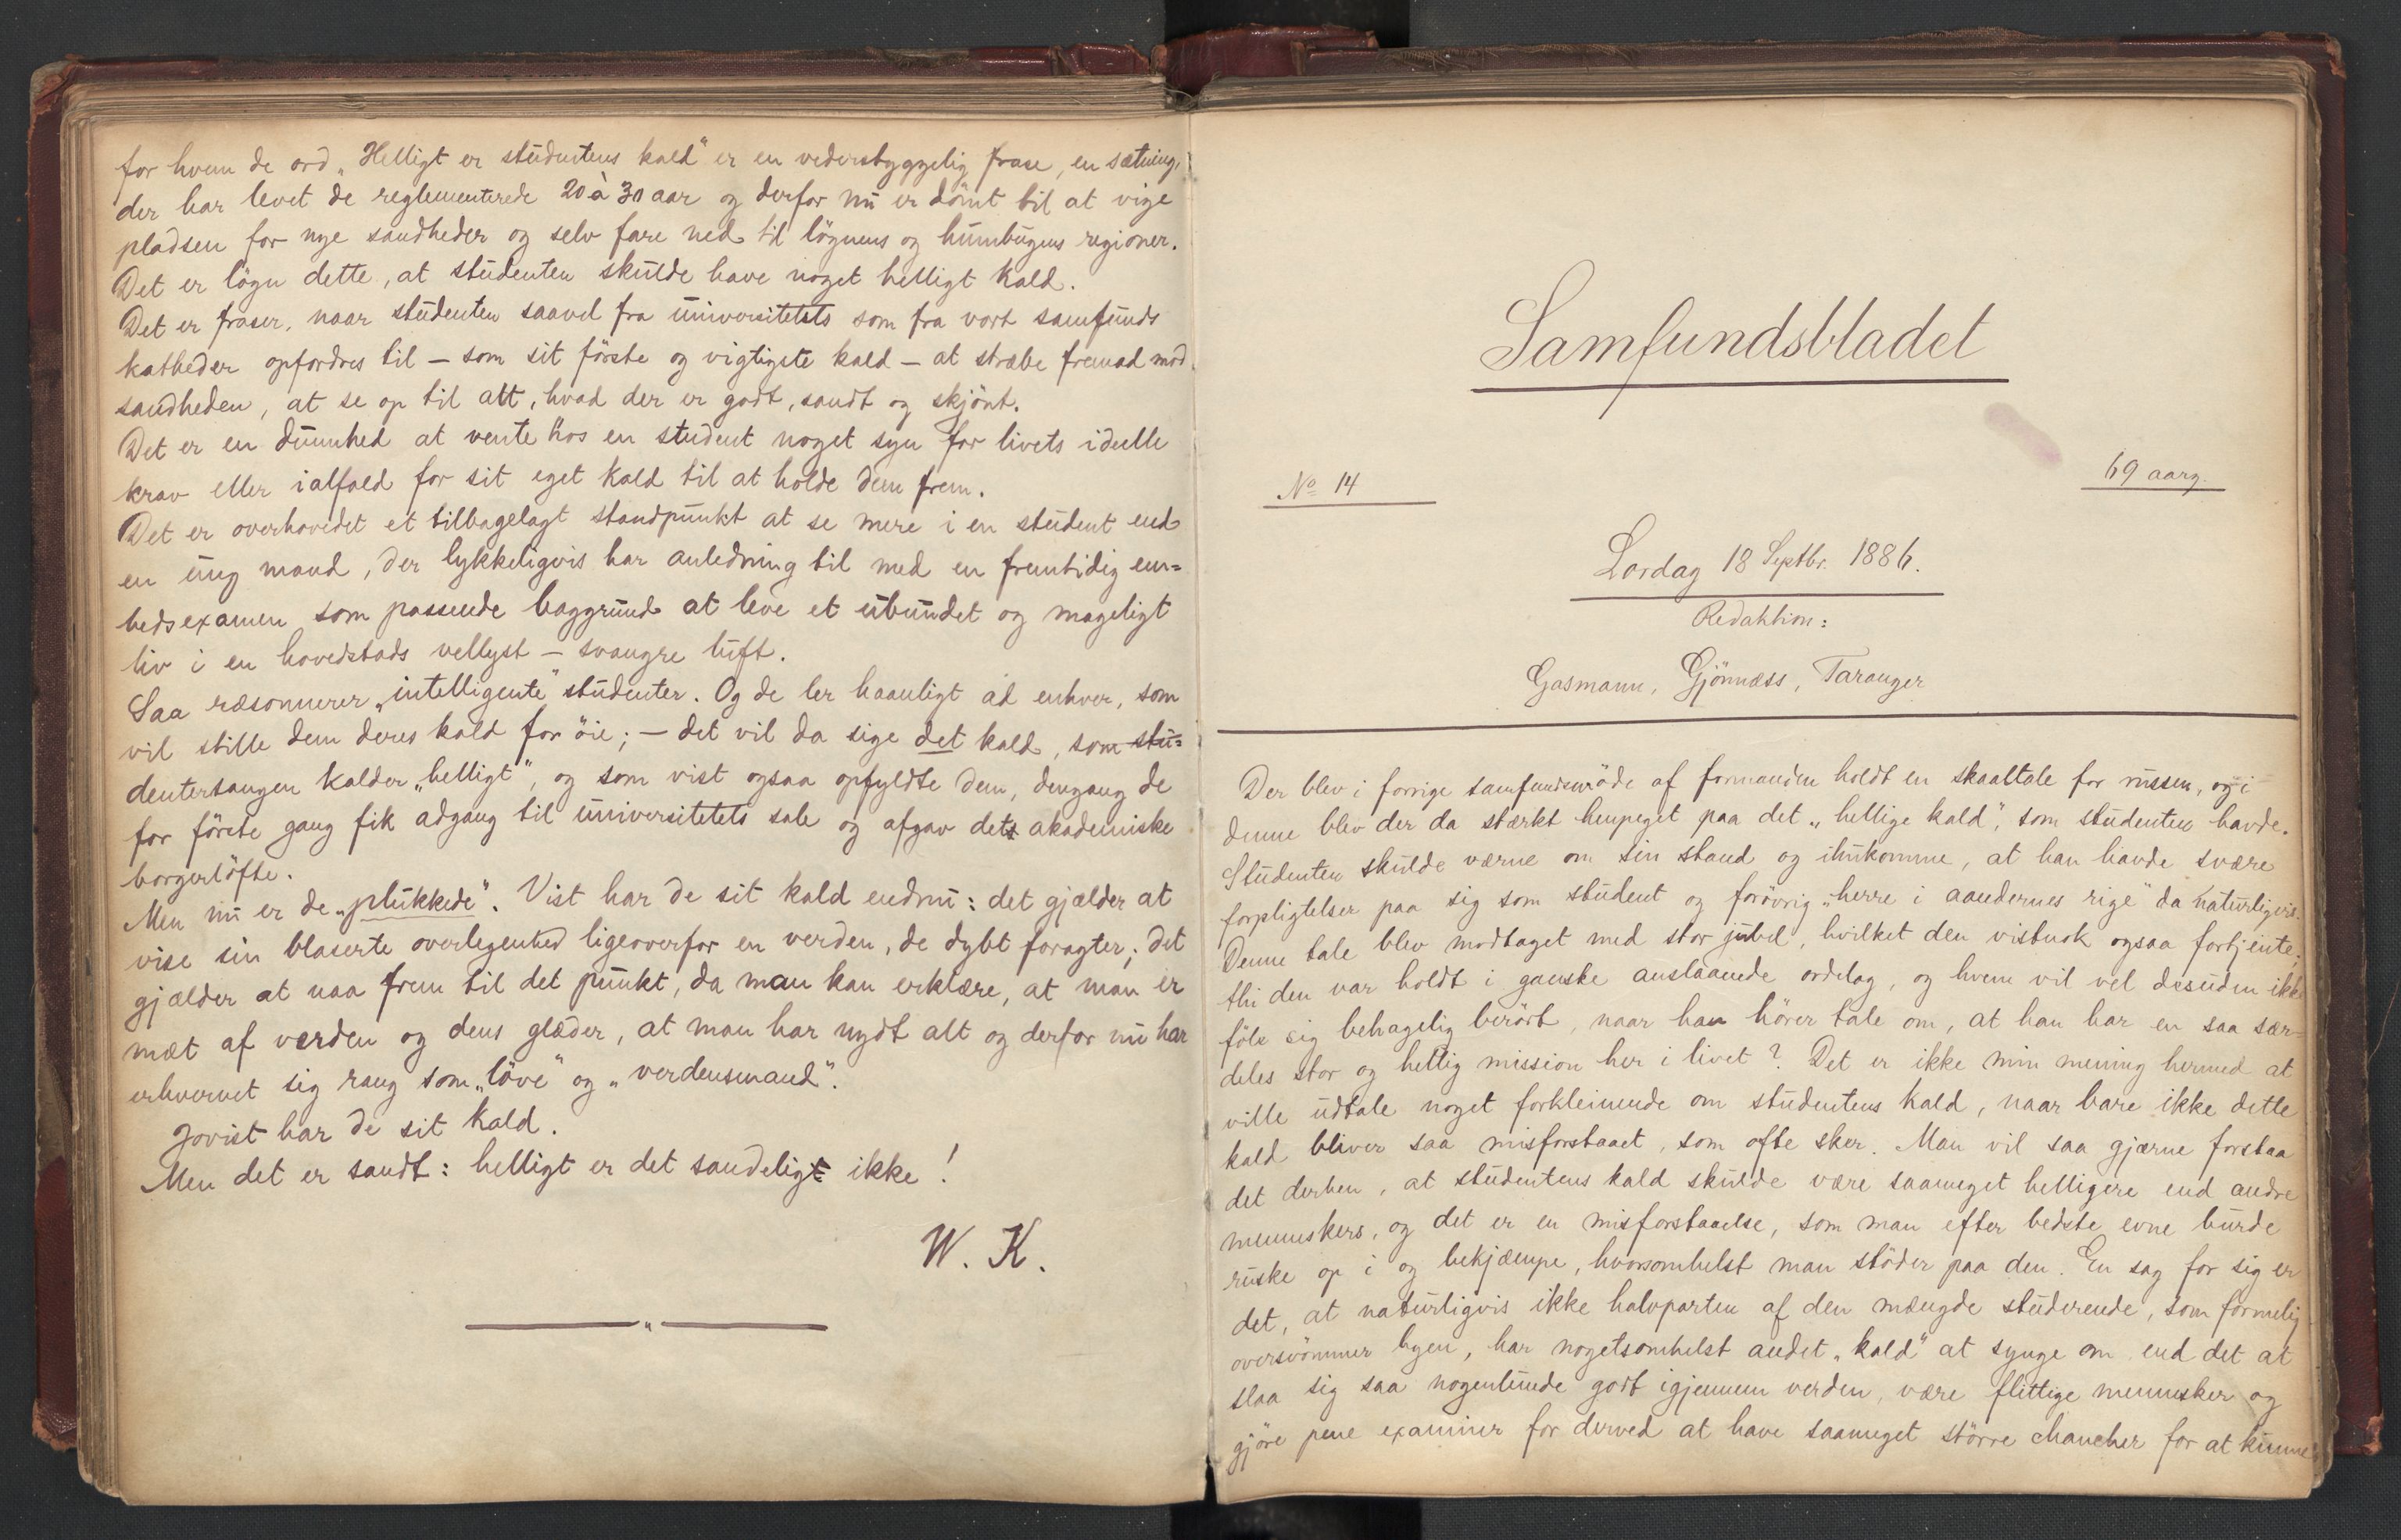 for hvem de ord „Helligt er studentens kald" er en vederstyggelig frase, en sætning,
der har levet de reglementerede 20 à 30 aar og derfor nu er dömt til at vige
pladsen for nye sandheder og selv fare ned til lögnens og humbugens regioner.
Det er lögn dette, at studenten skulde have noget helligt kald.
Det er fraser, naar studenten saavel fra universitetets som fra vort samfunds
katheder opfordres til – som sit förste og vigtigste kald – at stræbe fremad mod
sandheden, at se op til alt, hvad der er godt, sandt og skjönt.
Det er en dumhed at vente hos en student noget syn for livets ideelle
krav eller ialfald for sit eget kald til at holde dem frem.
Det er overhovedet et tilbagelagt standpunkt at se mere i en student end
en ung mand, der lykkeligvis har anledning til med en fremtidig em=
bedsexamen som passende baggrund at leve et ubundet og mageligt
liv i en hovedstads vellyst – svangre luft.
Saa ræsonnerer „intelligente" studenter. Og de ler haanligt ad enhver, som
vil stille dem deres kald for öie; – det vil da sige det kald, som stu=
dentersangen kalder „helligt", og som vist ogsaa opfyldte dem, dengang de
for förste gang fik adgang til universitetets sale og afgav det akademiske
borgerlöfte.
Men nu er de „plukkede". Vist har de sit kald endnu: det gjælder at
vise sin blaserte overlegenhed ligeoverfor en verden, de dybt foragter; det
gjælder at naa frem til det punkt, da man kan erklære, at man er
mæt af verden og dens glæder, at man har nydt alt og derfor nu har
erhvervet sig rang som „löve" og „verdensmand".
Jovist har de sit kald.
Men det er sandt: helligt er det sandeligt ikke!
W. K.
Samfundsbladet
No 14
69 aarg.
Lørdag 18 Septbr. 1886.
Redaktion:
Gasmann, Gjönnæss, Taranger
Der blev i forrige samfundsmöde af formanden holdt en skaaltale for russen, og i
denne blev der da stærkt henpeget paa det „hellige kald", som studenten havde.
Studenten skulde værne om sin stand og ihukomme, at han havde svære
forpligtelser paa sig som student og forövrig „herre i aandernes rige" da naturligvis.
Denne tale blev modtaget med stor jubel, hvilket den vistnok ogsaa fortjente;
thi den var holdt i ganske anslaaende ordelag, og hvem vil vel desuden ikke
föle sig behagelig berört, naar han hörer tale om, at han har en saa sær-
deles stor og hellig mission her i livet? Det er ikke min mening hermed at
ville udtale noget forkleinende om studentens kald, naar bare ikke dette
kald bliver saa misforstaaet, som ofte sker. Man vil saa gjærne forstaa
det derhen, at studentens kald skulde være saameget helligere end andre
menneskers, og det er en misforstaaelse, som man efter bedste evne burde
ruske op i og bekjæmpe, hvorsomhelst man stöder paa den. En sag for sig er
det, at naturligvis ikke halvparten af den mængde studerende, som formelig
oversvömmer byen, har nogetsomhelst andet „kald" at synge om end det at
slaa sig saa nogenlunde godt igjennem verden, være flittige mennesker og
gjöre pene examiner for derved at have saameget större chancher for at kunne